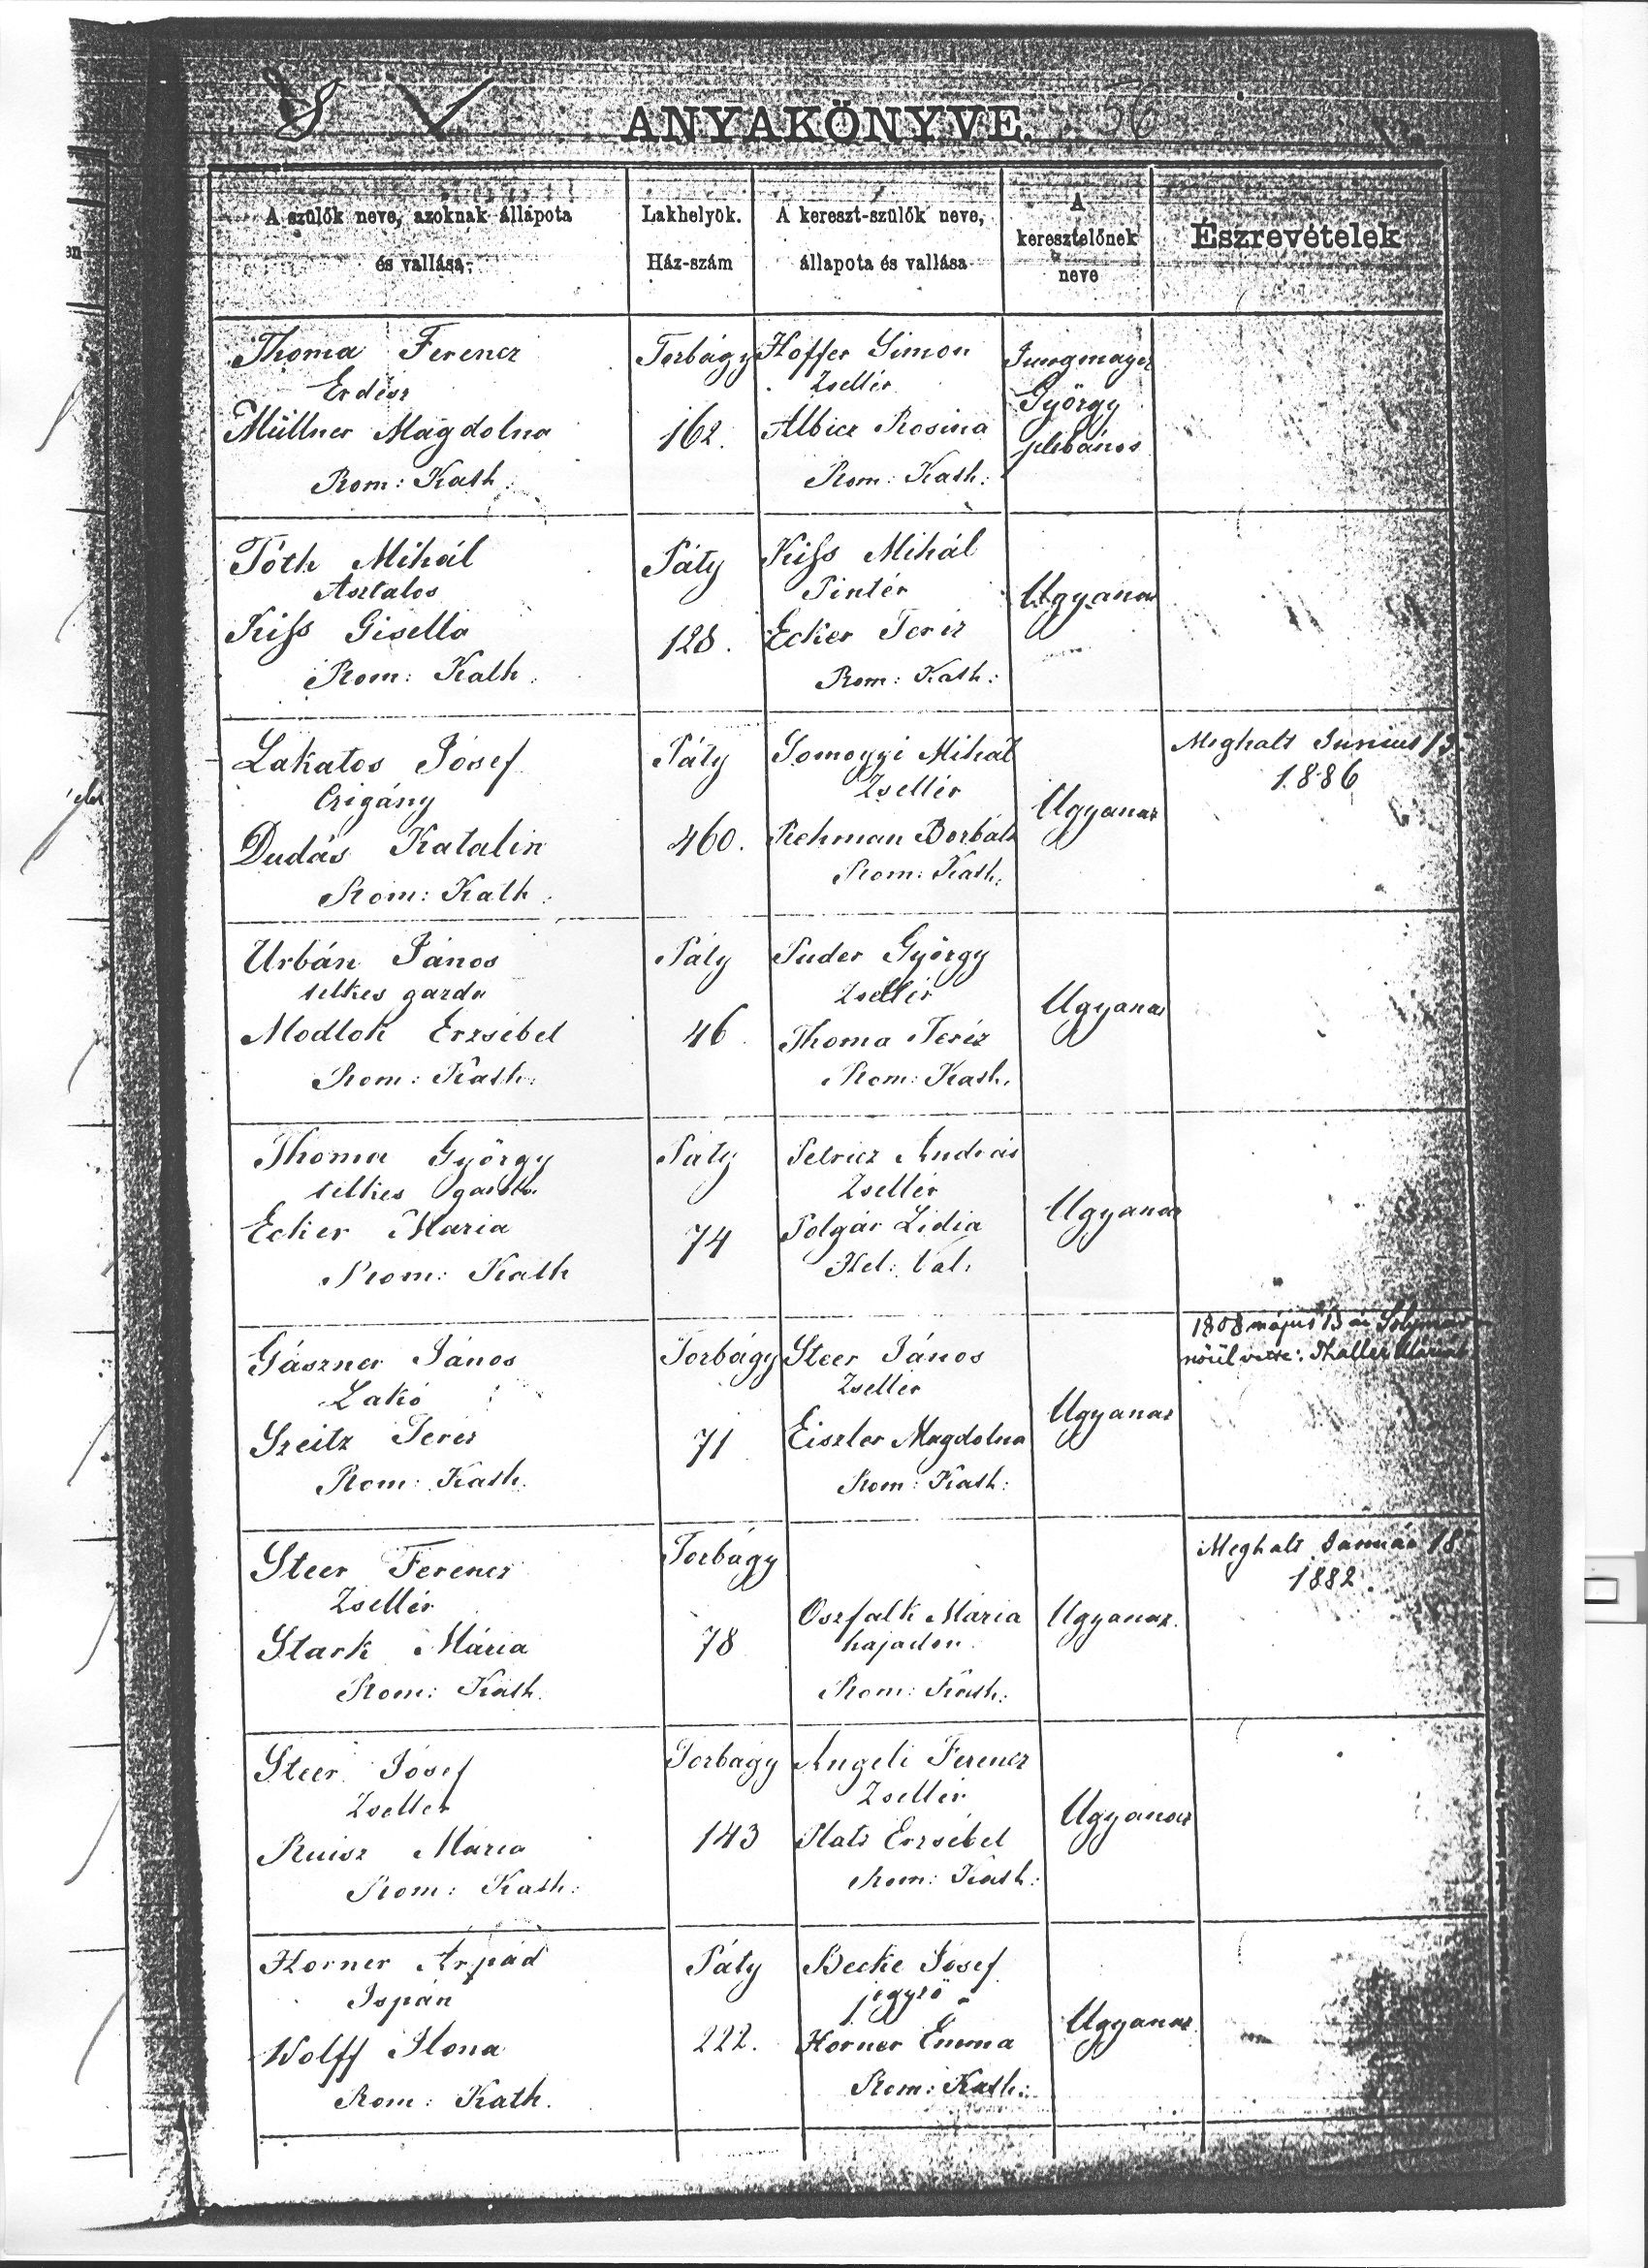 ANYAKÖNYVE. 56
A szülők neve, azoknak állapota
és vallása
Lakhelyök.
Ház-szám
A kereszt-szülők neve,
állapota és vallása
A
keresztelőnek
neve
Észrevételek
Thoma Ferencz
Erdész
Müllner Magdolna
Rom: Kath:
Torbágy
162.
Hoffer Simon
Zsellér
Albicz Rosina
Rom: Kath:
Jungmayer
György
plébános
Tóth Mihál
Asztalos
Kiss Gisella
Rom: Kath.
Páty
128.
Kiss Mihál
Pintér
Ecker Teréz
Rom: Kath:
Ugyanaz
Lakatos Jósef
Czigány
Dudás Katalin
Rom: Kath.
Páty
460.
Somogyi Mihál
Zsellér
Rehman Borbála
Rom: Kath.
Ugyanaz
Meghalt Junius
1886
Urbán János
telkes gazda
Modlok Erzsébet
Rom: Kath:
Páty
46.
Puder György
Zsellér
Thoma Teréz
Rom: Kath.
Ugyanaz
Thoma György
telkes gazda
Ecker Maria
Rom: Kath
Páty
74
Petricz András
Zsellér
Polgár Lidia
Hel: Val.
Ugyanaz
Gászner János
Lakó
Szeitz Teréz
Rom: Kath.
Torbágy
71
Steer János
Zsellér
Eiszler Magdolna
Rom: Kath:
Ugyanaz
1808 május 13 án Solymár
nőül vette: Thaller Máriát
Steer Ferencz
Zsellér
Stark Mária
Rom: Kath.
Torbágy
78
Oszfalk Mária
hajadon.
Rom: Kath:
Ugyanaz.
Meghalt Január 18
1882.
Steer Jósef
Zsellér
Ruisz Mária
Rom: Kath:
Torbágy
143
Angeli Ferencz
Zsellér
Platz Erzsébet
Rom: Kath:
Ugyanaz
Horner Árpád
Ispán
Wolff Ilona
Rom: Kath.
Páty
222.
Becke Jósef
jegyző
Horner Emma
Rom: Kath:
Ugyanaz